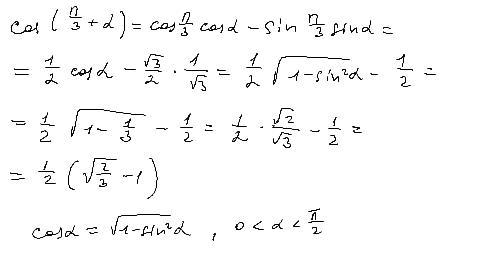 cos (π/3 + α) = cos π/3 cos α - sin π/3 sin α =
= 1/2 cos α - √3/2 · 1/√3 = 1/2 √(1-sin²α) - 1/2 =
= 1/2 √(1 - 1/3) - 1/2 = 1/2 · √2/√3 - 1/2 =
= 1/2 (√(2/3) - 1)
cos α = √(1-sin²α) , 0 < α < π/2